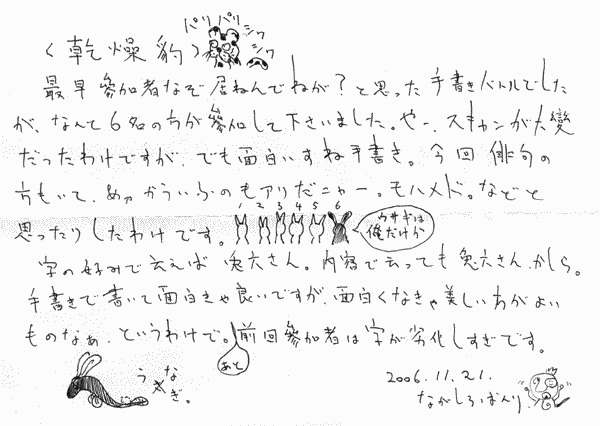 (乾燥豹) パリ パリ シワ シワ
最早參加者なぞ居ねんでねが？と思った手書きバトルでした
が、なんて6名の方が參加して下さいました。やー、スキャンが大變
だったわけですが、でも面白いすね手書き。今回俳句の
方もいて、あゝ、かういふのもアリだニャー。モハメド。などと
思ったりしたわけです。 1 2 3 4 5 6 ウサギは俺だけか
字の好みで云えば兎六さん。内容で云っても兎六さん、かしら。
手書きで書いて面白きゃ良いですが、面白くなきゃ美しい方がよい
ものなぁ、というわけで。あと前回參加者は字が劣化しすぎです。
うなぎ。 2006.11.21.
ながしろばんり